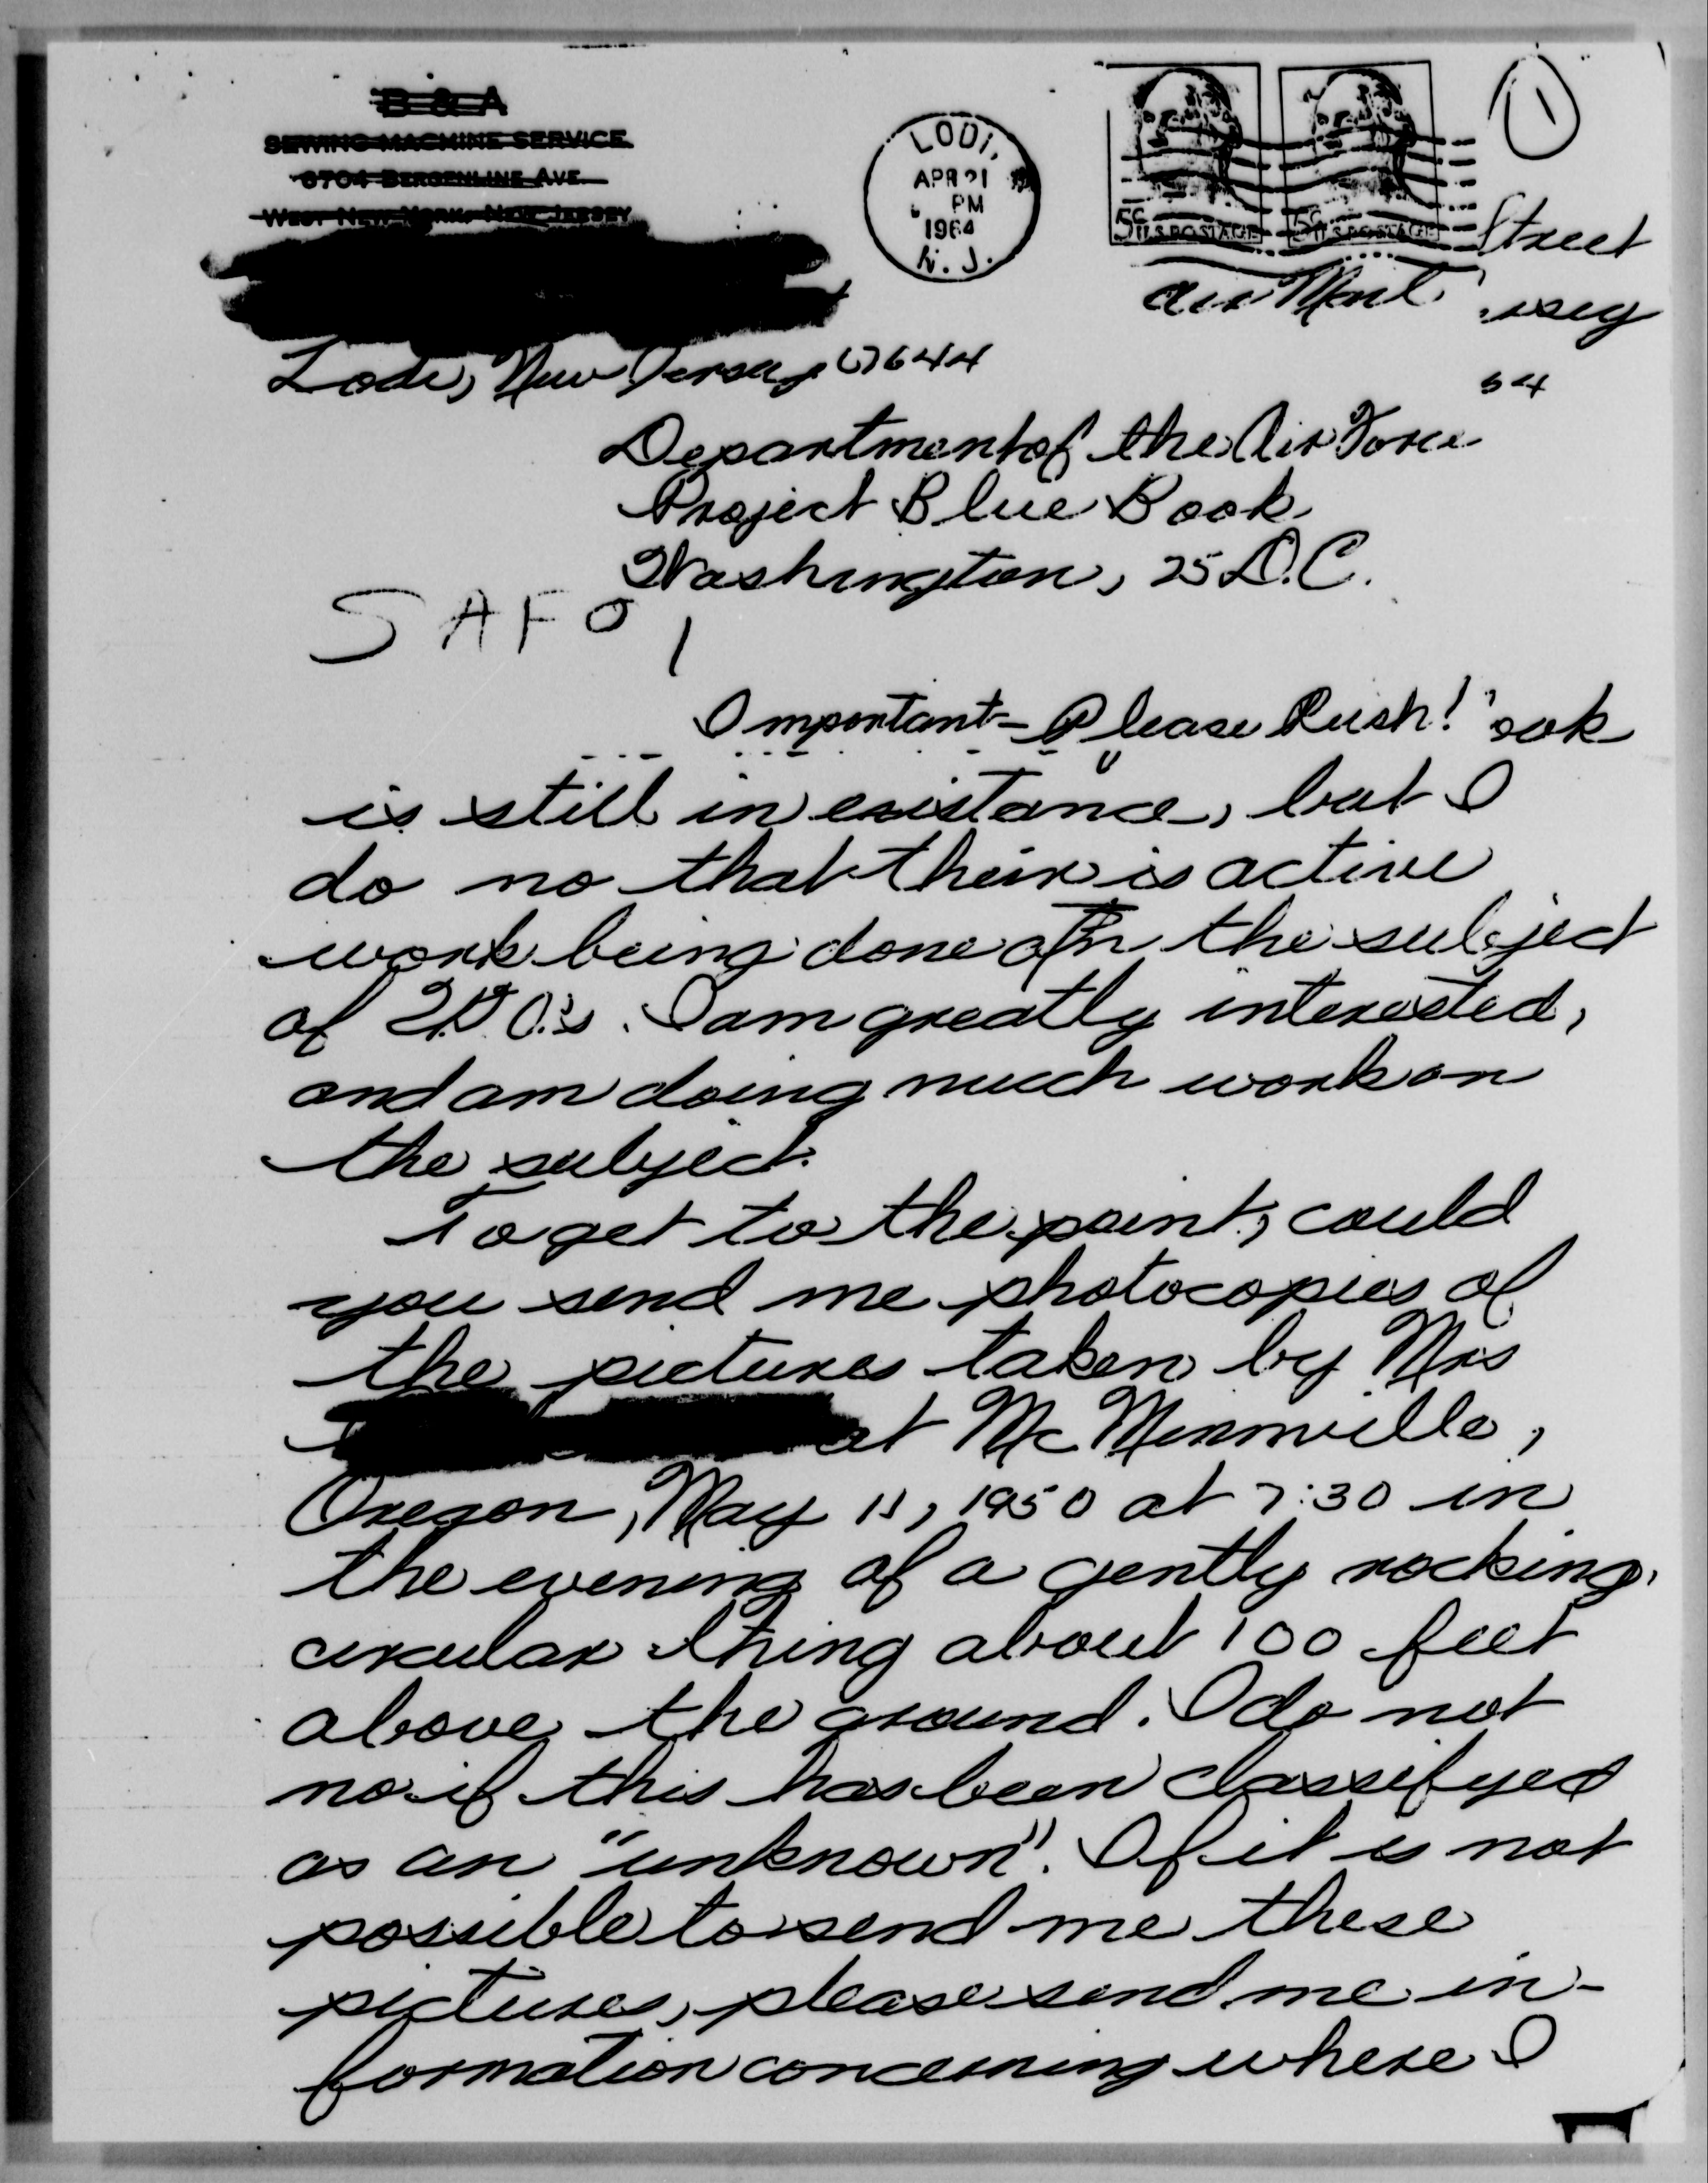 B & A
SEWING MACHINE SERVICE
6704 BERGENLINE AVE.
WEST NEW YORK, NEW JERSEY
LODI,
APR 21
PM
1964
N. J.
5c U.S. POSTAGE
5c U.S. POSTAGE
1
Street
Air Mail
rsey
Lodi, New Jersey 07644
64
Department of the Air Force
Project Blue Book
Washington, 25 D.C.
SAFO
Important - Please Rush!
ook
is still in existance, but I
do no that their is active
work being done on the subject
of U.F.O.'s. I am greatly interested,
and am doing much work on
the subject.
To get to the point, could
you send me photocopies of
the pictures taken by Mrs
at McMinnville,
Oregon, May 11, 1950 at 7:30 in
the evening of a gently rocking,
circular thing about 100 feet
above the ground. I do not
no if this has been classifyed
as an "unknown". If it is not
possible to send me these
pictures, please send me in-
formation concerning where I